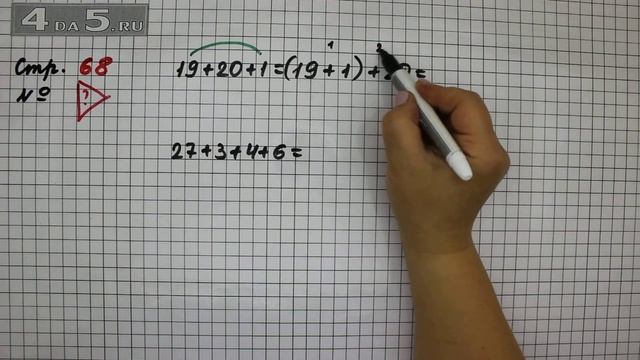 4 ДА 5.RU
Стр. 68
№ ?
1 2
19+20+1=(19+1)+20=
27+3+4+6=